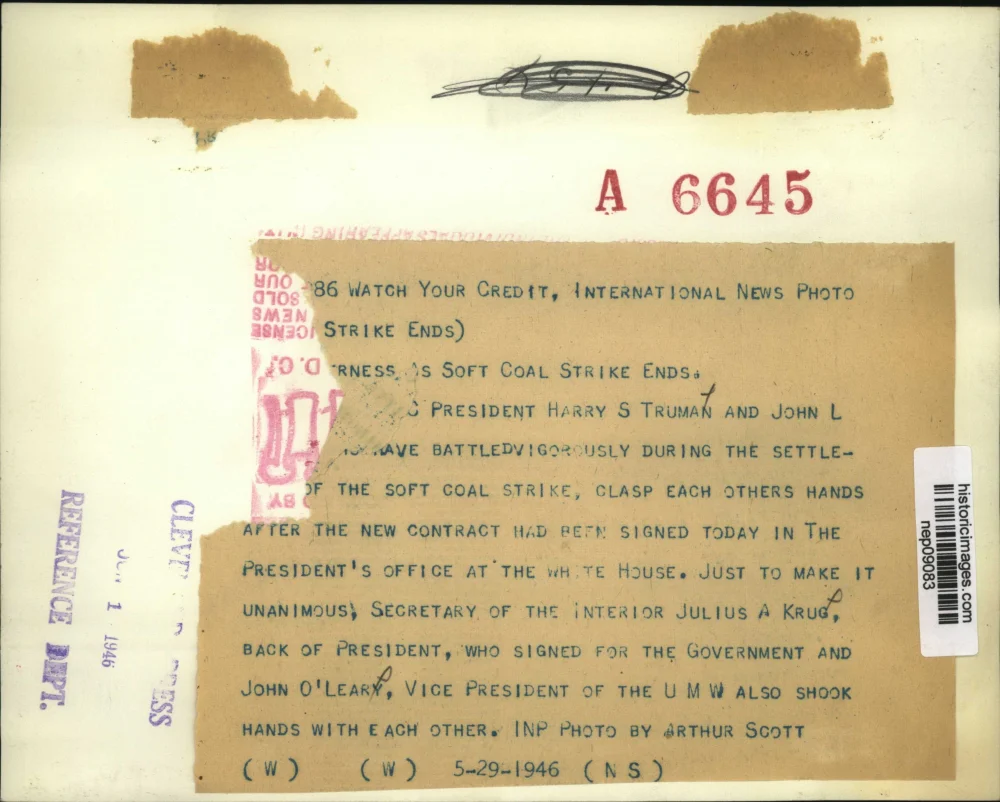 A 6645
86 WATCH YOUR CREDIT, INTERNATIONAL NEWS PHOTO
STRIKE ENDS)
RNESS AS SOFT COAL STRIKE ENDS.
C PRESIDENT HARRY S TRUMAN AND JOHN L
HAVE BATTLEDVIGOROUSLY DURING THE SETTLE-
OF THE SOFT COAL STRIKE, CLASP EACH OTHERS HANDS
AFTER THE NEW CONTRACT HAD BEEN SIGNED TODAY IN THE
PRESIDENT'S OFFICE AT THE WHITE HOUSE. JUST TO MAKE IT
UNANIMOUS, SECRETARY OF THE INTERIOR JULIUS A KRUG,
BACK OF PRESIDENT, WHO SIGNED FOR THE GOVERNMENT AND
JOHN O'LEARY, VICE PRESIDENT OF THE U M W ALSO SHOOK
HANDS WITH EACH OTHER. INP PHOTO BY ARTHUR SCOTT
(W) (W) 5-29-1946 (NS)
OUR
SOLD
NEWS
D.C.
BY
historicimages.com
nep09083
CLEVE
PRESS
1 1946
REFERENCE DEPT.